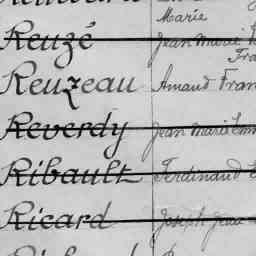 Marie
Reuzé Jean Marie
Fra
Reuzeau Amand Fran
Reverdy Jean Marie Emm
Ribault Ferdinand E
Ricard Joseph Jean